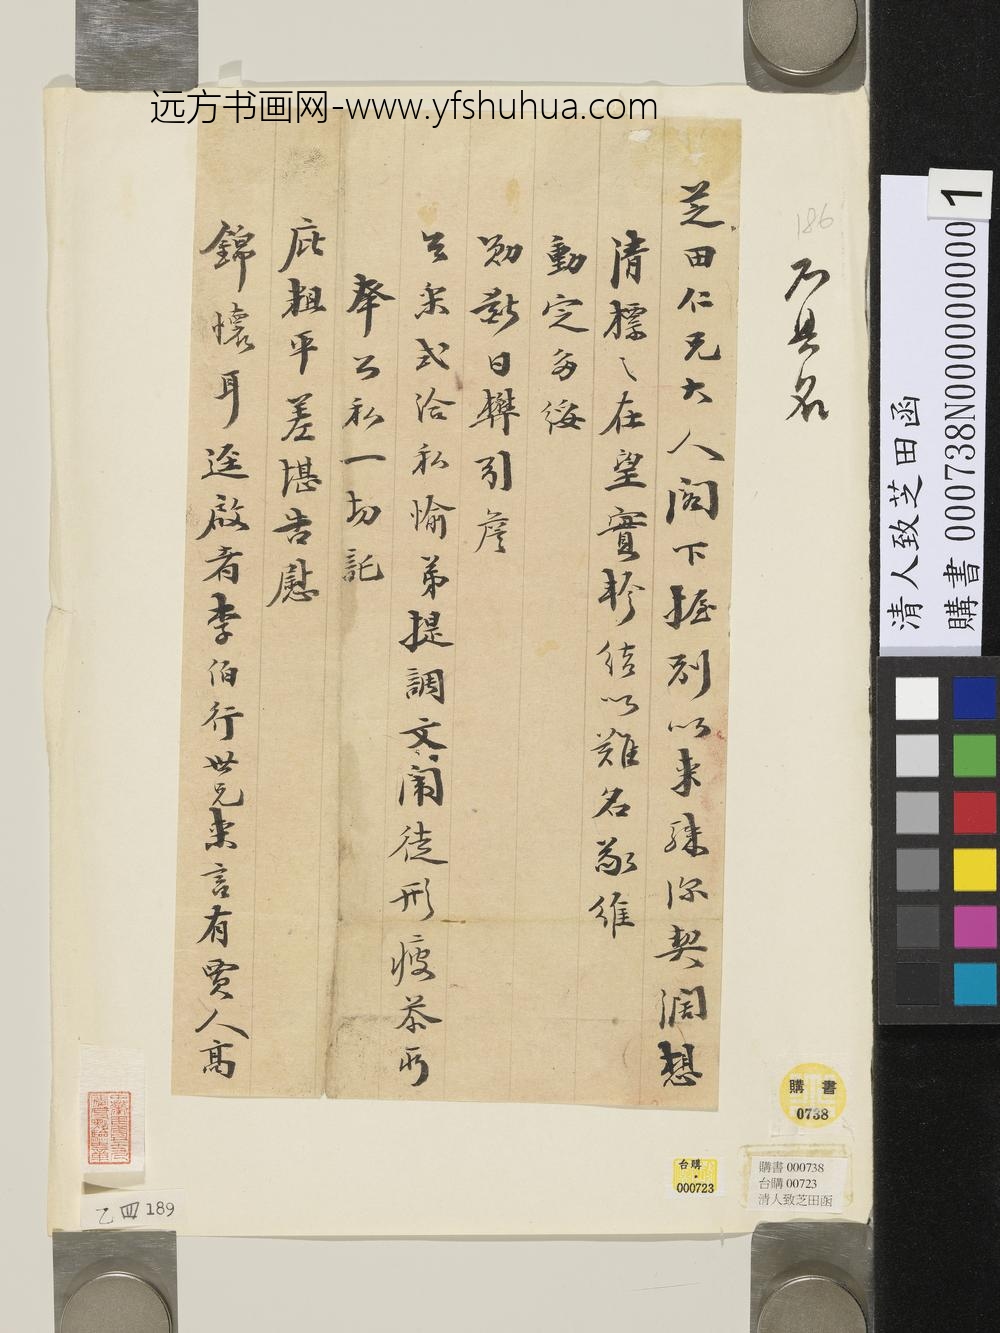 远方书画网-www.yfshuhua.com
芝田仁兄大人阁下握别以来殊深契阔想
清標〻在望實軫结以難名敬維
動定多绥
勛薪日
引詹
公来式洽私愉弟提調文闱徒形疲苶所
奉公私一切託
庇粗平差堪告慰
錦懷耳迳啟者李伯行世兄来言有賈人高
186
不具名
清人致芝田函
購書 000738N000000000
1
購書
0738
台購
000723
購書 000738
台購 00723
清人致芝田函
乙四189